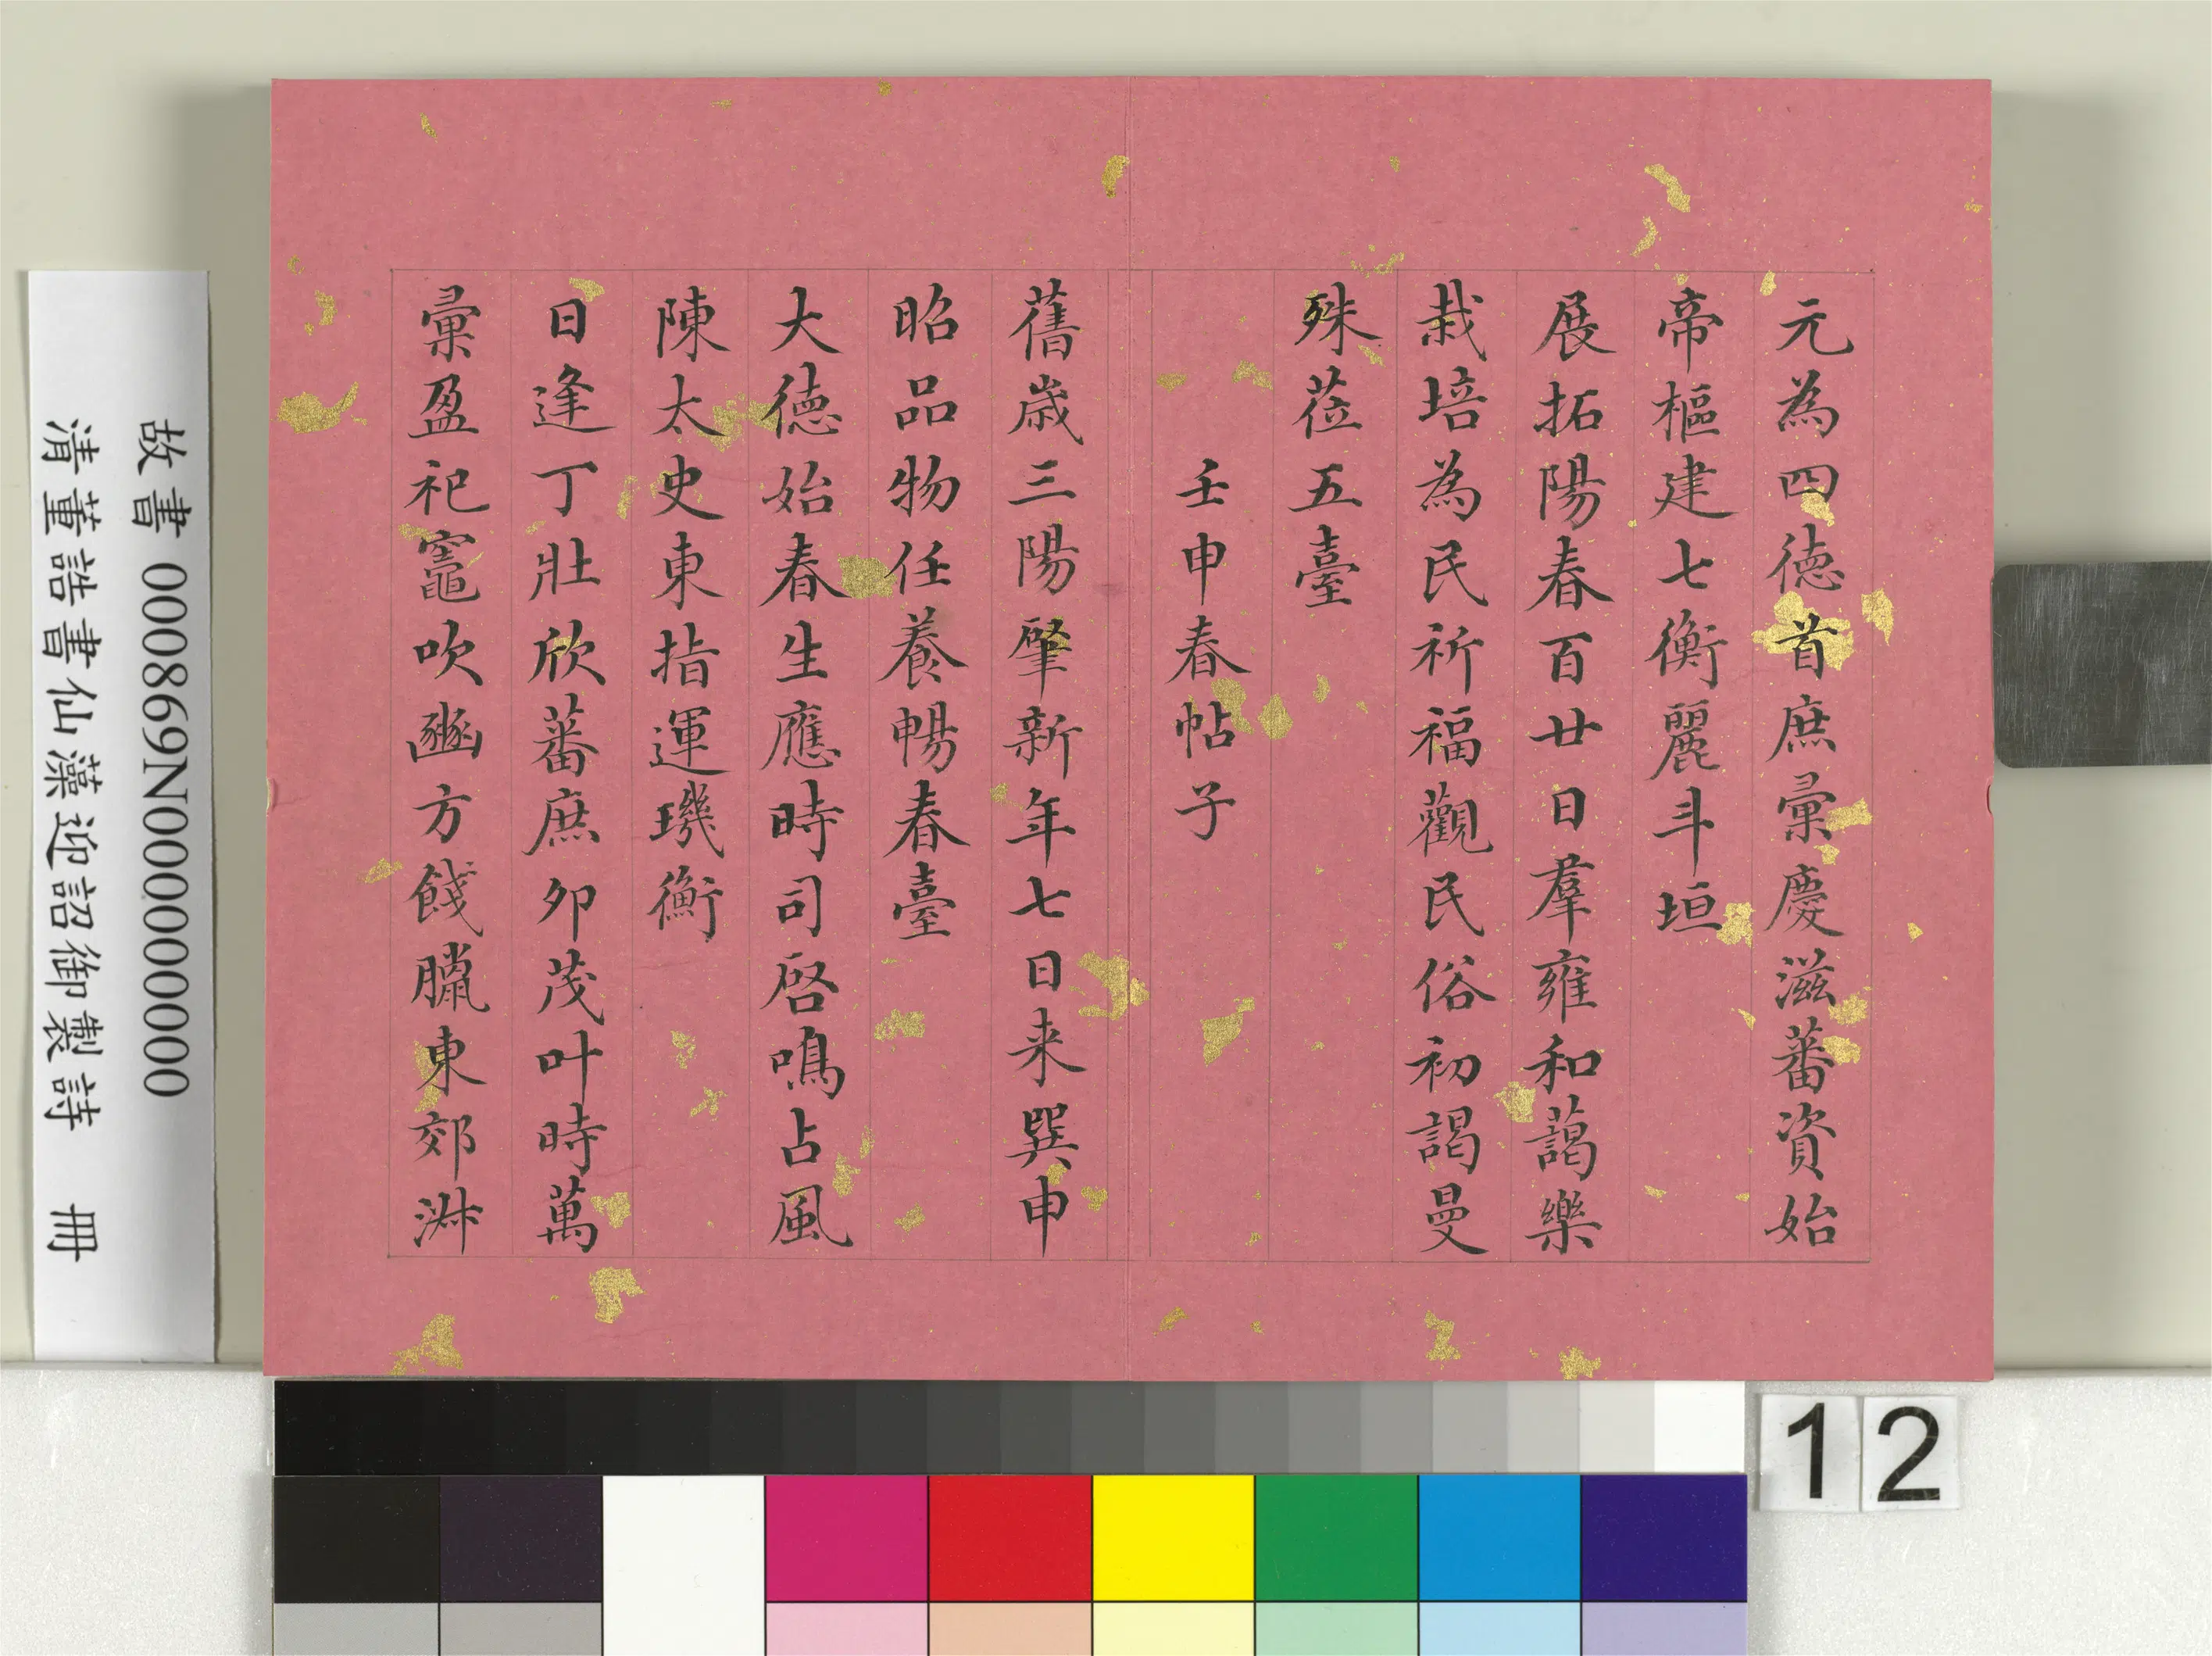 元為四德首庶彙慶滋蕃資始
帝樞建七衡麗斗垣
展拓陽春百廿日羣雍和藹樂
栽培為民祈福觀民俗初謁曼
殊莅五臺
壬申春帖子
舊歲三陽肇新年七日来巽申
昭品物任養暢春臺
大德始春生應時司啓鳴占風
陳太史東指運璣衡
日逢丁壯欣蕃庶卯茂叶時萬
彙盈祀竈吹豳方餞臘東郊淑
故書 000869N000000000
清董誥書仙藻迎詔御製詩 冊
12